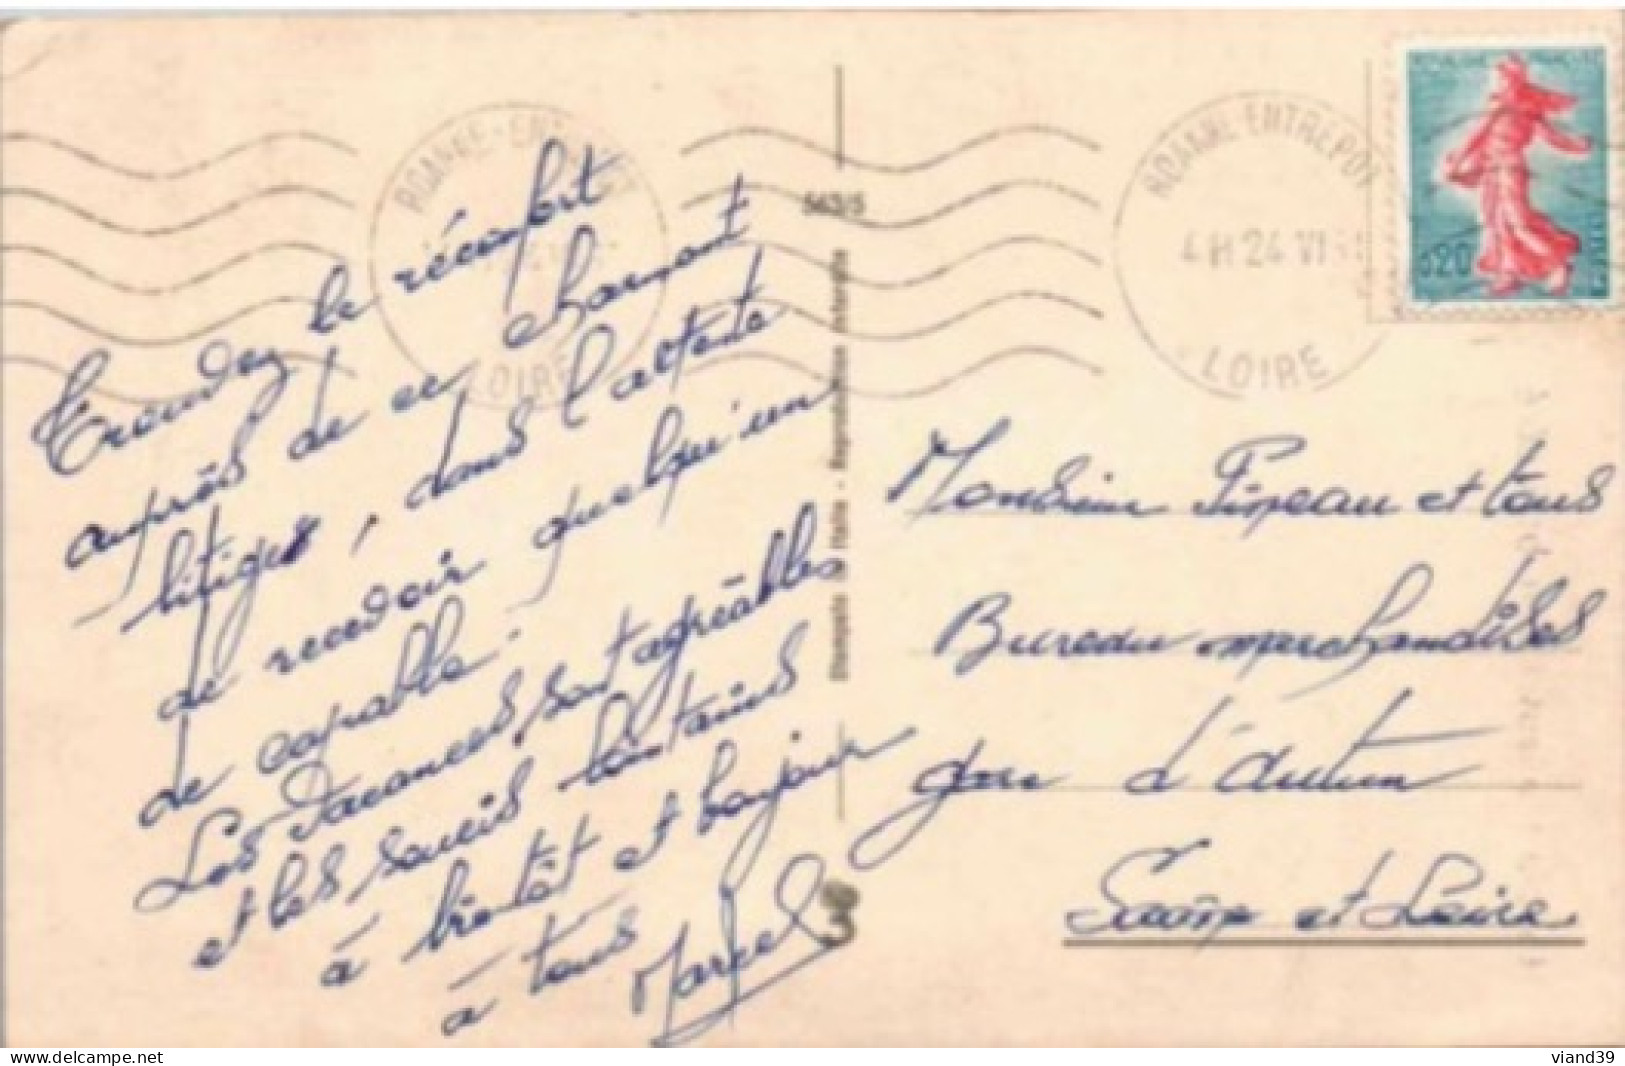 Trouvez le réconfort
auprès de ce charmant
litige, dans l'attente
de recevoir quelqu'un
de capable.
Les vacances sont agréables
et les soucis lointains
à bientôt et bonjour
à tous
Marcel
ROANNE-ENTREPOT
LOIRE
543/5
Stampato in Italia - Reproduction interdite
36
ROANNE ENTREPOT
4H 24 VI
LOIRE
REPUBLIQUE FRANCAISE
0,20
Monsieur Pipeau et tous
Bureau marchandises
gare d'Autun
Saône et Loire
www.delcampe.net
viand39